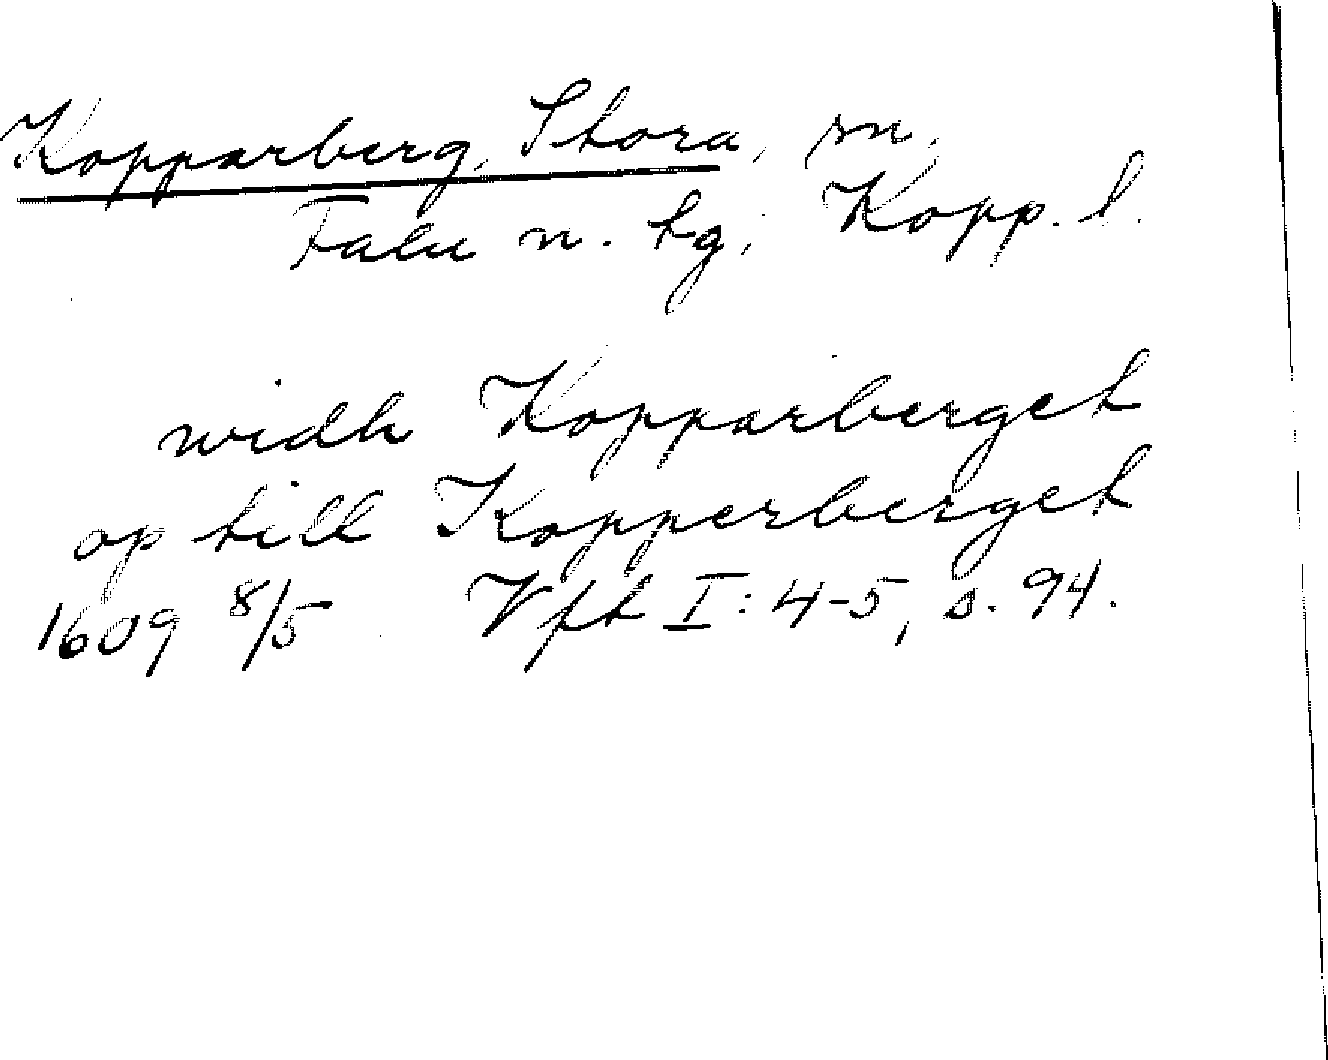 Kopparberg, Stora, sn,
Falu n. tg; Kopp. l.
widh Kopparberget
op till Kopperberget
1609 8/5 Vft I: 4-5, s. 94.